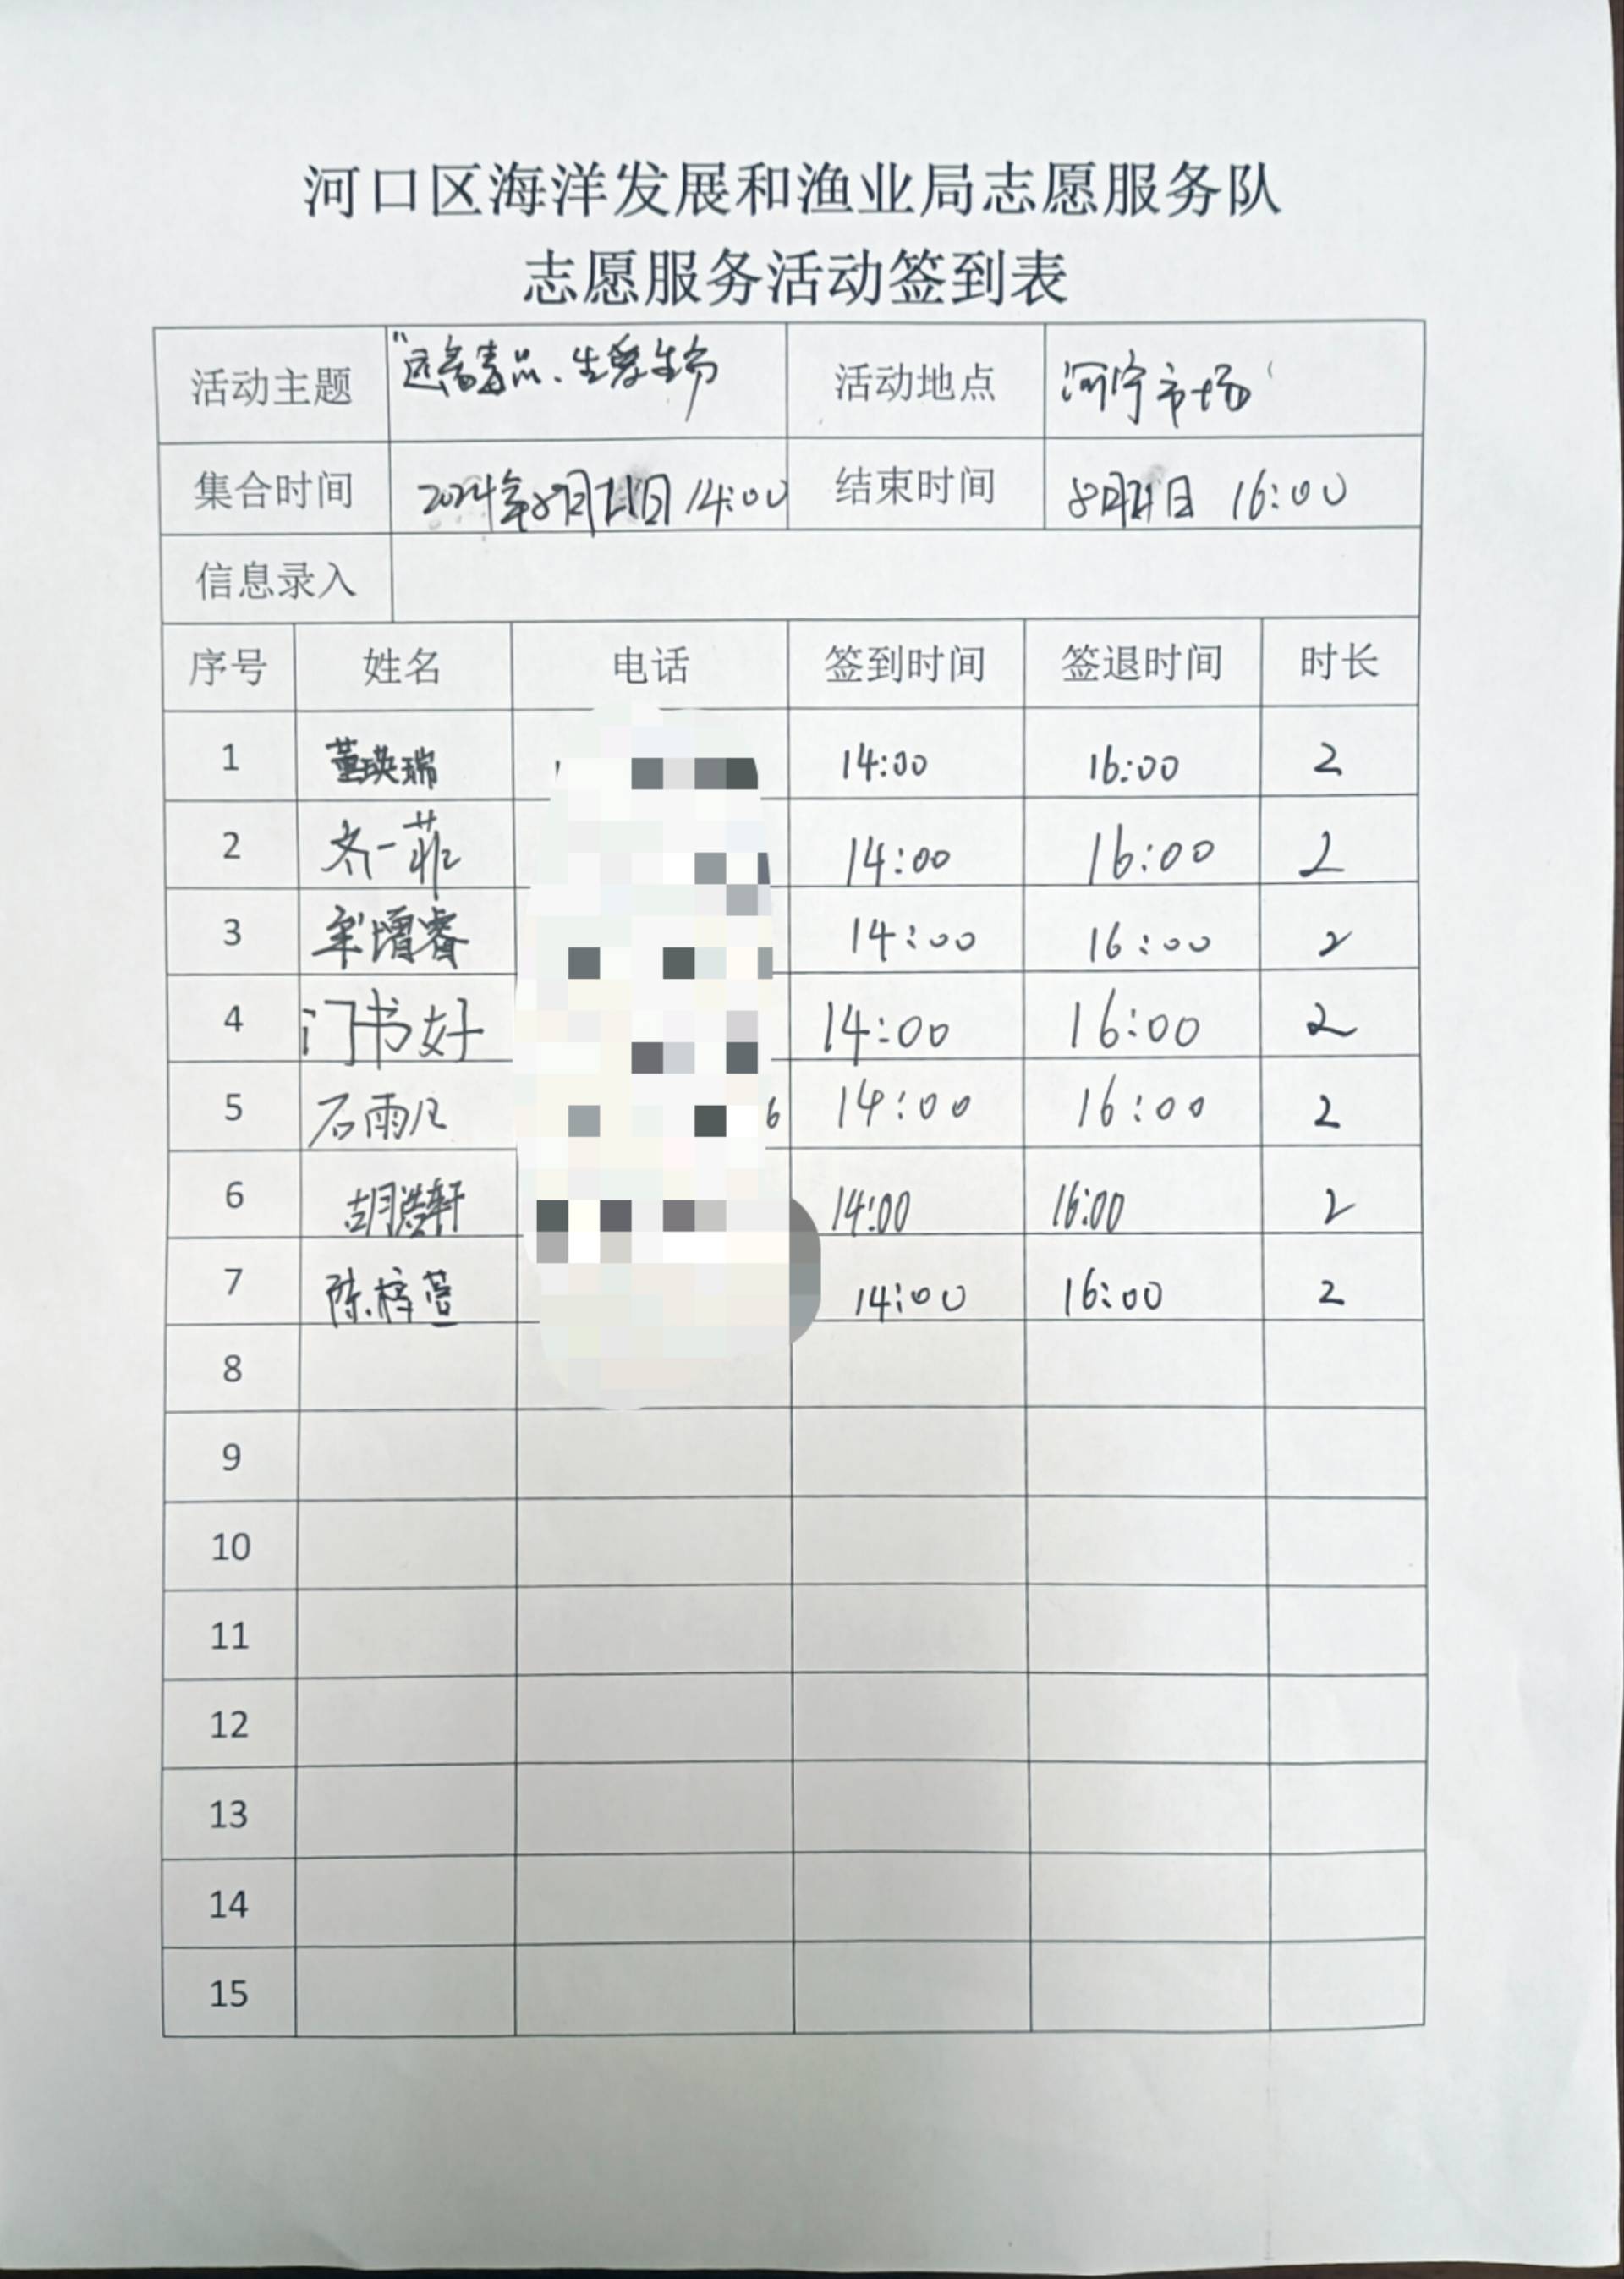 河口区海洋发展和渔业局志愿服务队
志愿服务活动签到表
活动主题 "远离毒品、 活动地点 河宁市场
集合时间 2024年8月21日 14:00 结束时间 8月21日 16:00
信息录入
序号 姓名 电话 签到时间 签退时间 时长
1 董瑛瑞 14:00 16:00 2
2 齐一菲 14:00 16:00 2
3 增睿 14:00 16:00 2
4 门书好 14:00 16:00 2
5 石雨凡 6 14:00 16:00 2
6 胡浩轩 14:00 16:00 2
7 陈梓萱 14:00 16:00 2
8
9
10
11
12
13
14
15